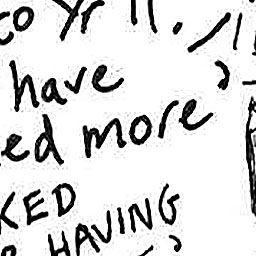 to Yr 11.
have
ed more
KED
HAVING